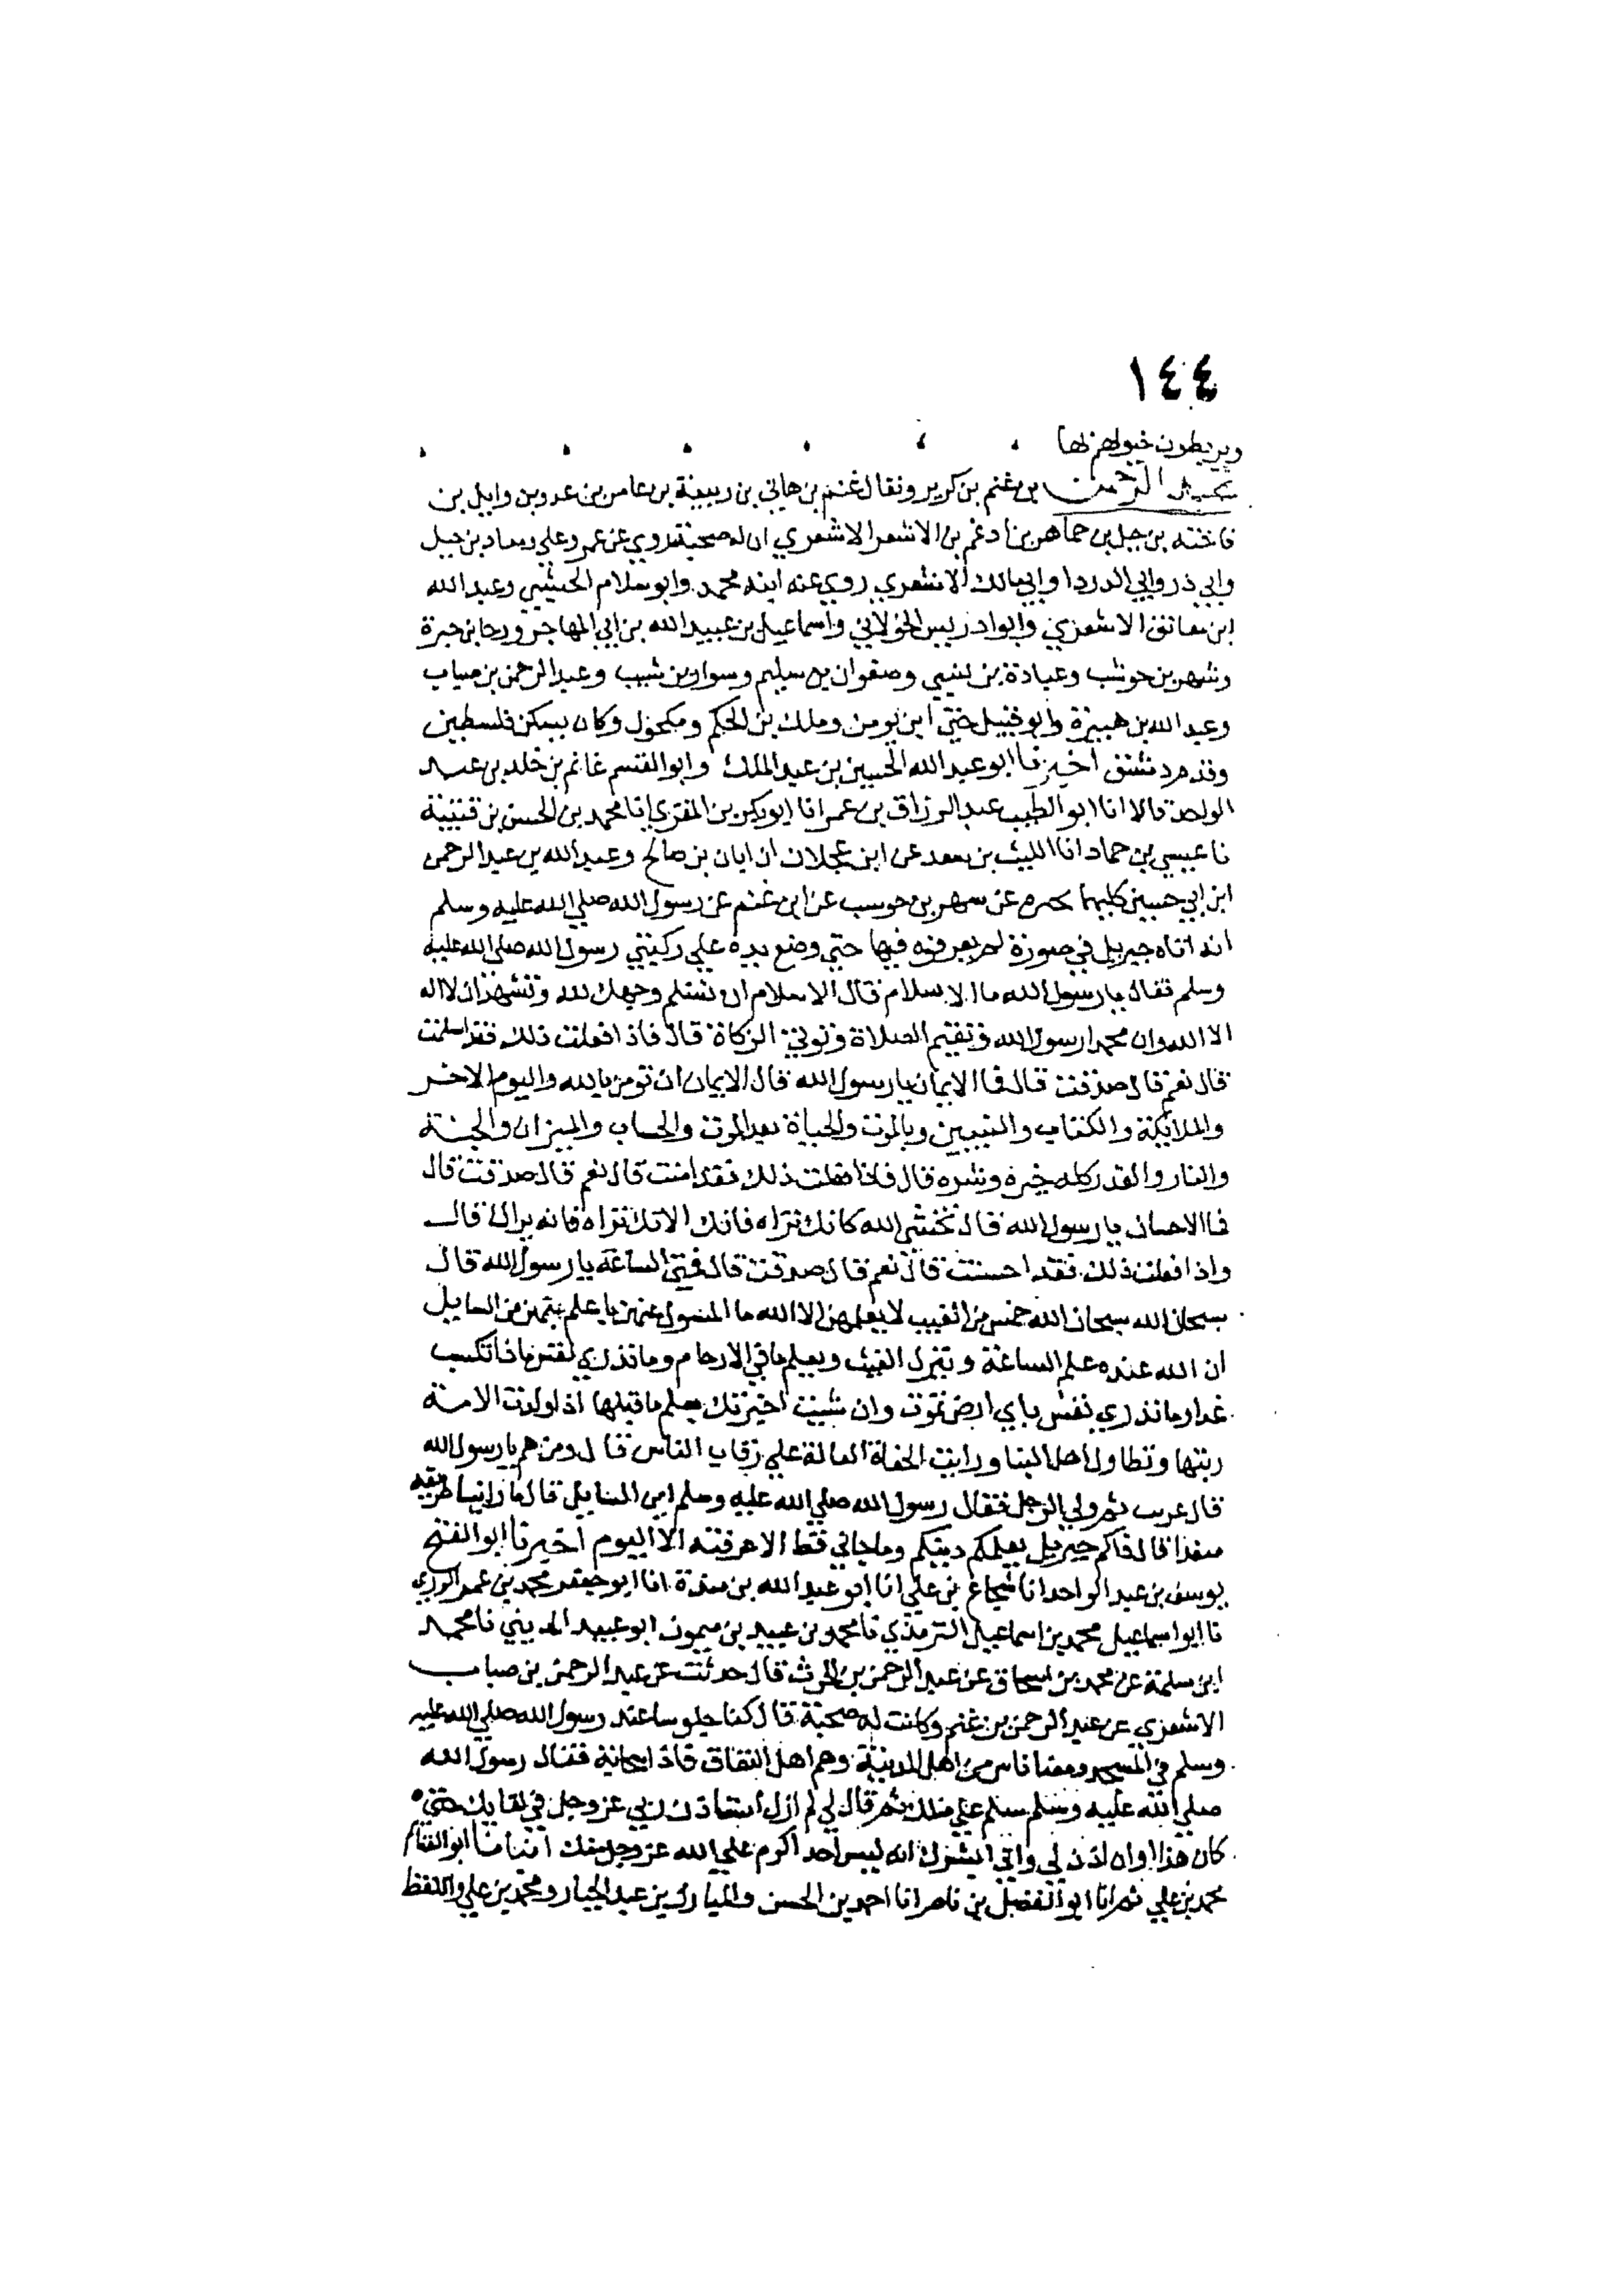 ١٤٤
ويربطون خيولهم بها
عبد الرحمن بن غنم بن كريز ويقال غنم بن هاني بن ربيعة بن عامر بن عدي بن وايل بن
ناجية بن جبل بن جماهر بن ادغم بن الاشعر الاشعري ان له صحبة روي عن عمر وعلي ومعاد بن جبل
وابي ذر وابي الدردا وابي مالك الاشعري روي عنه ابنه محمد وابو سلام الحبشي وعبد الله
ابن معانق الاشعري وابو ادريس الخولاني واسماعيل بن عبيد الله بن ابي المهاجر ورجا بن حيوة
وشهر بن حوشب وعبادة بن نسي وصفوان بن سليم وسوار بن شبيب وعبد الرحمن بن صباب
وعبد الله بن هبيرة وابو قبيل حيي ابن يومن وملك بن الحكم ومكحول وكان يسكن فلسطين
وقدم دمشق اخبرنا ابو عبد الله الحسين بن عبد الملك وابو القسم غانم بن خلد بن عبد
الواحد قالا انا ابو الطيب عبد الرزاق بن عمر انا ابو بكر بن المقري انا محمد بن الحسن بن قتيبة
نا عيسي بن حماد انا الليث بن سعد عن ابن عجلان ان ابان بن صالح وعبد الله بن عبد الرحمن
ابن ابي حسين كليهما عن شهر بن حوسب عن ابن غنم عن رسول الله صلي الله عليه وسلم
انه اتاه جبريل في صورة لم يعرفه فيها حتي وضع يده علي ركبتي رسول الله صلي الله عليه
وسلم فقال يا رسول الله ما الاسلام قال الاسلام ان تسلم وجهك لله وتشهد ان لا اله
الا الله وان محمدا رسول الله وتقيم الصلاة وتوتي الزكاة قال فاذا فعلت ذلك فقد اسلمت
قال نعم قال صدقت قال فما الايمان يا رسول الله قال الايمان ان تومن بالله واليوم الاخر
والملايكة والكتاب والنبيين وبالموت والحياة بعد الموت والحساب والميزان والجنة
والنار والقدر كله خيره وشره قال فاذا فعلت ذلك فقد امنت قال نعم قال صدقت قال
فما الاحسان يا رسول الله قال تخشي الله كانك تراه فانك الا تك تراه فانه يراك قال
واذا فعلت ذلك فقد احسنت قال نعم قال صدقت قال فمتي الساعة يا رسول الله قال
سبحان الله سبحان الله خمس من الغيب لا يعلمهن الا الله ما المسول عنهن باعلم بهن من السايل
ان الله عنده علم الساعة وينزل الغيث ويعلم ما في الارحام وما تدري نفس ماذا تكسب
غدا وما تدري نفس باي ارض تموت وان شيت اخبرتك بعلم ما قبلها اذا ولدت الامة
ربتها وتطاول اهل البنا ورايت الحفاة العالة علي رقاب الناس قال ومن هم يا رسول الله
قال عريب ثم ولي الرجل فقال رسول الله صلي الله عليه وسلم اين السايل قال ما راينا طريقه
منفذا قال ذاكم جبريل يعلمكم دينكم وما جاني قط الا عرفته الا اليوم اخبرنا ابو الفتح
يوسف بن عبد الواحد انا شجاع بن علي انا ابو عبد الله بن مندة انا ابو جعفر محمد بن عمر الرزي
نا ابو اسماعيل محمد بن اسماعيل الترمذي نا محمد بن عبيد بن ميمون ابو عبيد المديني نا محمد
ابن سلمة عن محمد بن اسحاق عن عبد الرحمن بن الحرث قال حدثت عن عبد الرحمن بن صباب
الاشعري عن عبد الرحمن بن غنم وكانت له صحبة قال كنا جلوسا عند رسول الله صلي الله عليه
وسلم في المسجد ومعنا ناس من اهل المدينة وهم اهل النفاق فاذا سحابة فقال رسول الله
صلي الله عليه وسلم سلم علي ملك ثم قال لي لم ازل استاذن ربي عز وجل في لقايك حتي
كان هذا اوان اذن لي واني ابشرك انه ليس احد اكرم علي الله عز وجل منك انبانا ابو الغنايم
محمد بن علي ثم انا ابو الفضل بن ناصر انا احمد بن الحسن والمبارك بن عبد الجبار ومحمد بن علي واللفظ